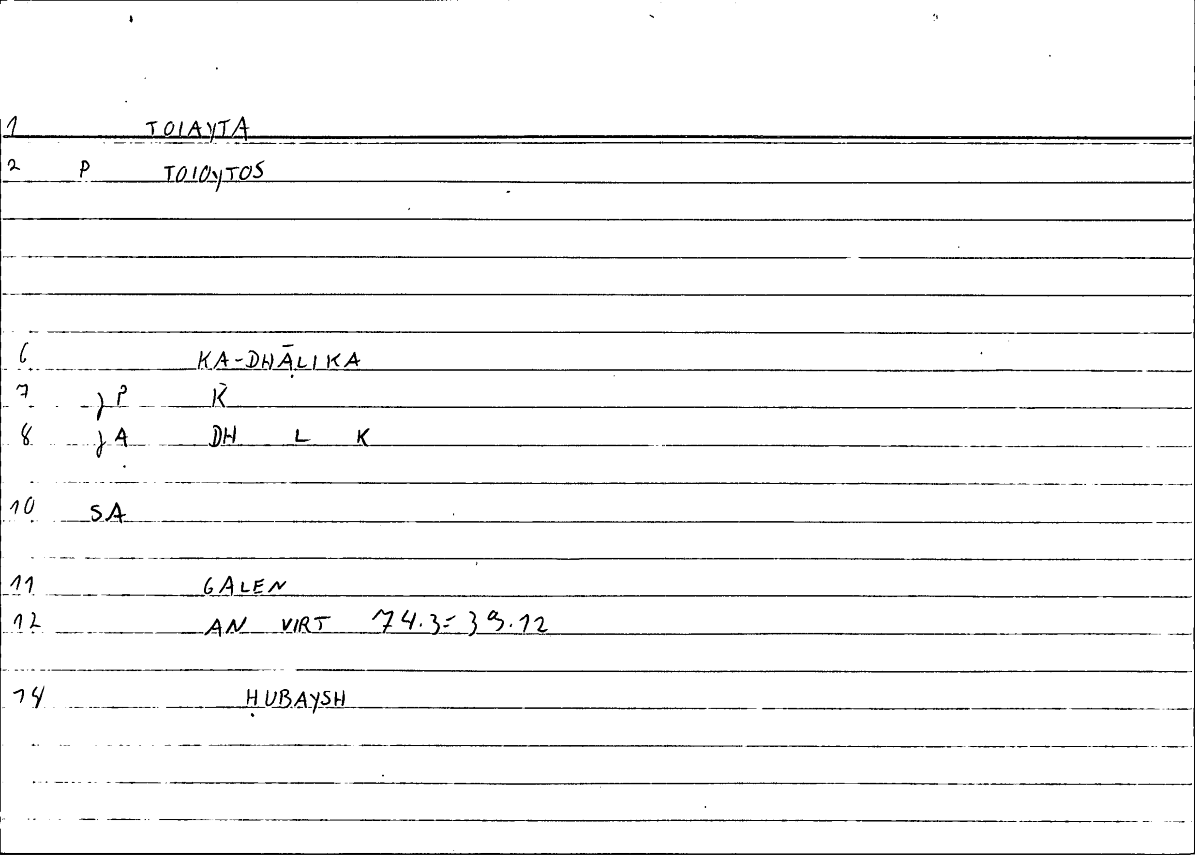 1 TOIAYTA
2 P TOIOYTOS
6 KA-DHĀLIKA
7 jP K
8 jA DH L K
10 SA
11 GALEN
12 AN VIRT 74.3=39.12
14 ḤUBAYSH